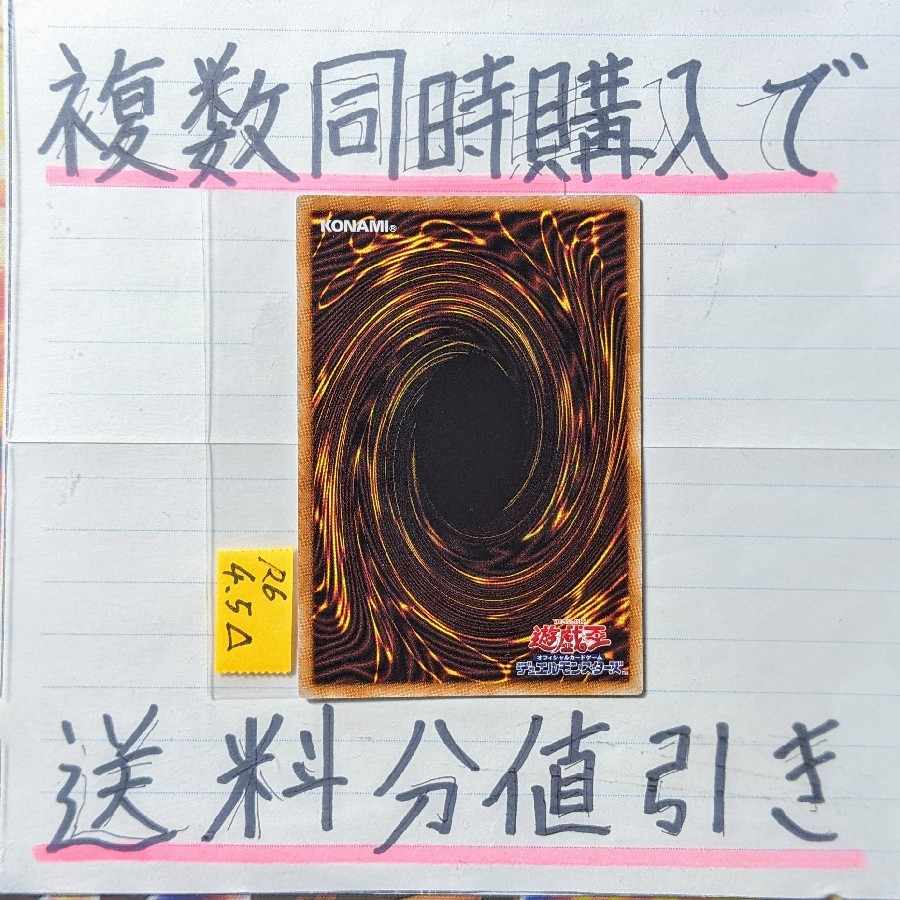 複数同時購入で
KONAMI®
R6
4.5△
遊戯王
オフィシャルカードゲーム
デュエルモンスターズ
送料分値引き